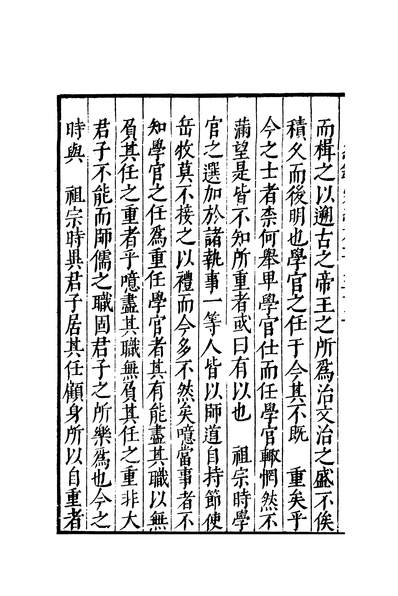 而楫之以遡古之帝王之所爲治文治之盛不俟
積久而後明也學官之任于今其不既　重矣乎
今之士者柰何舉卑學官仕而任學官輙惘然不
滿望是皆不知所重者或曰有以也　祖宗時學
官之選加於諸執事一等人皆以師道自持節使
岳牧莫不接之以禮而今多不然矣噫當事者不
知學官之任爲重任學官者其有能盡其職以無
負其任之重者乎噫盡其職無負其任之重非大
君子不能而師儒之職固君子之所樂爲也今之
時與　祖宗時異君子居其任顧身所以自重者